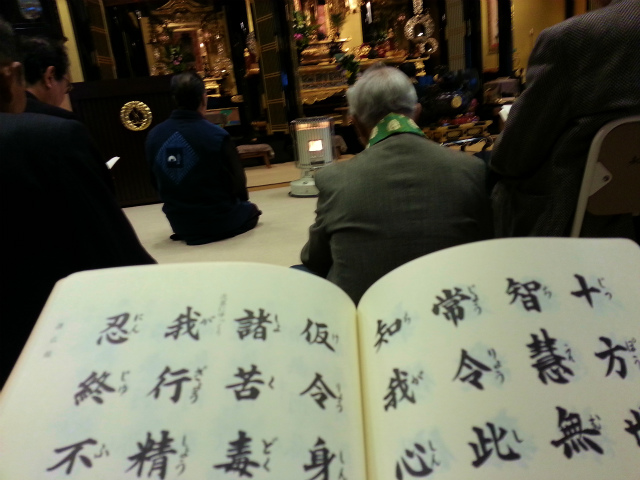 十方
智慧無
常令此
知我心
仮令身
諸苦毒
我行精
忍終不